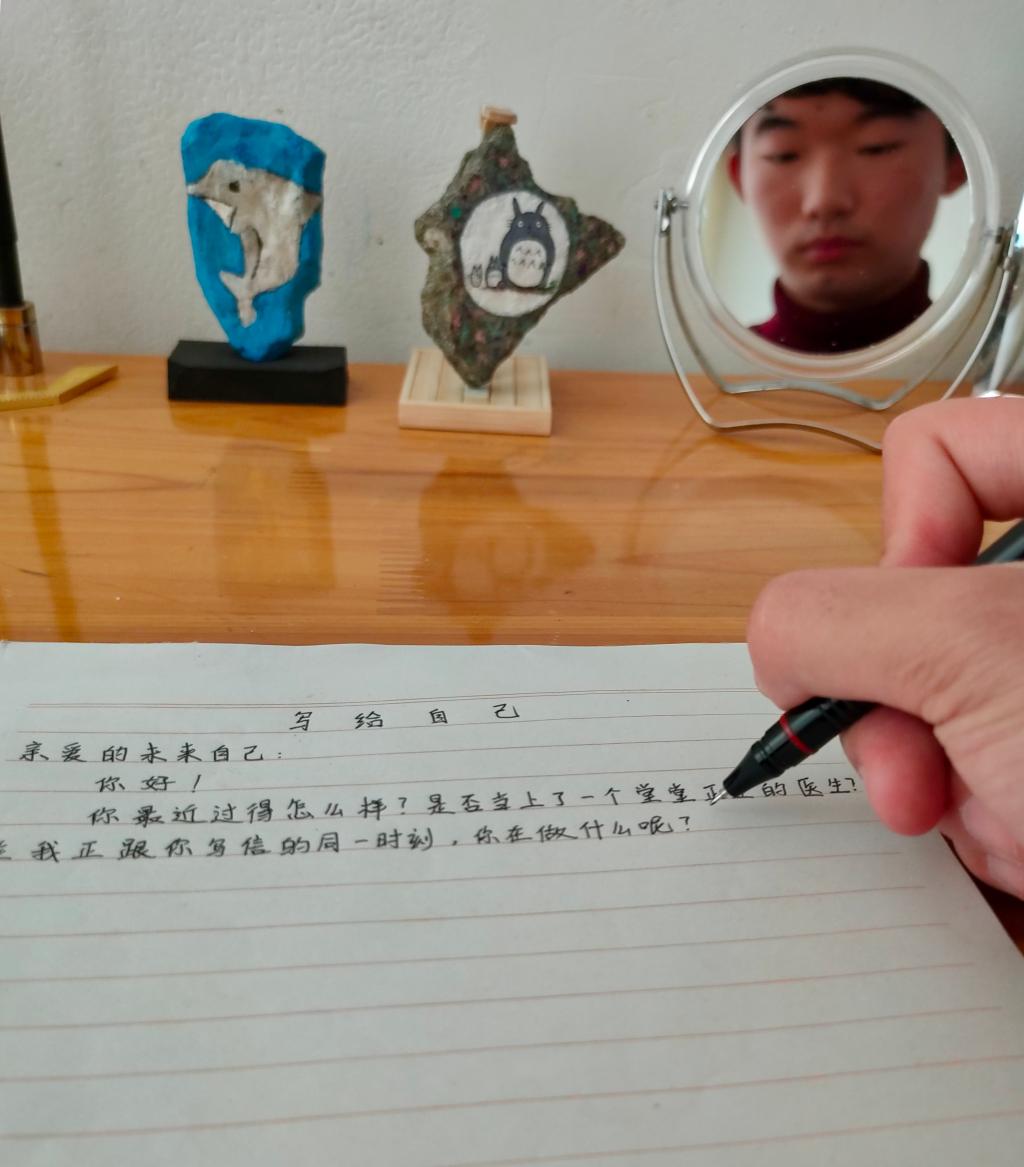 写给自己
亲爱的未来自己：
你好！
你最近过得怎么样？是否当上了一个堂堂正正的医生？
我正跟你写信的同一时刻，你在做什么呢？